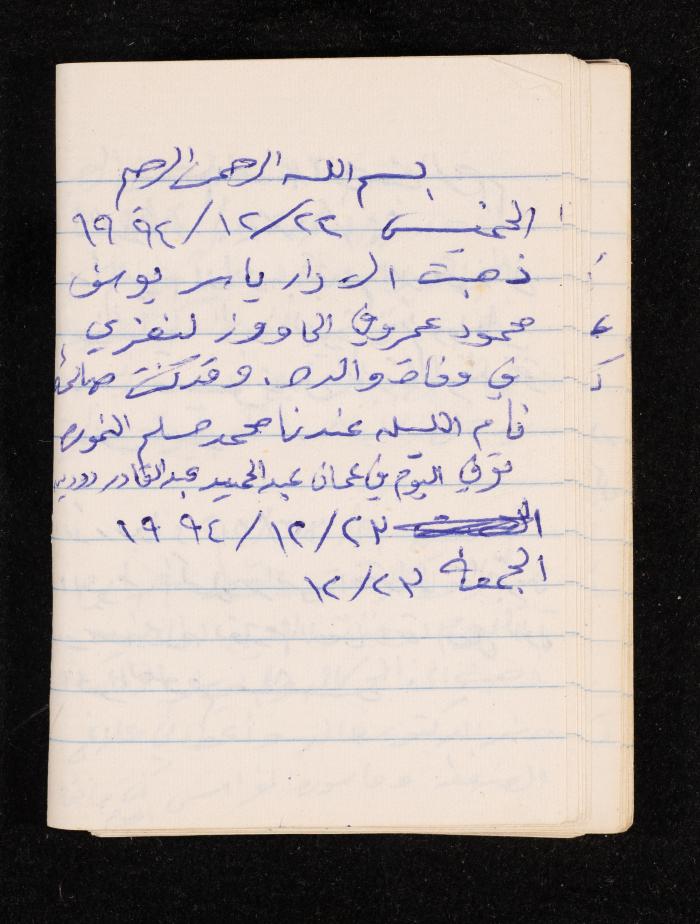 بسم الله الرحمن الرحيم
الخميس ٢٢/١٢/١٩٩٤
ذهبت الى دار ياسر يوسف
محمود عمرو في الماوورز لنعزي
في وفاة والده. وقد كنت صائما
نام الليلة عندنا محمد مسلم النمورة
توفي اليوم في عمان عبد الحميد عبد القادر دودين
٢٣/١٢/١٩٩٤
الجمعة ١٢/٢٣